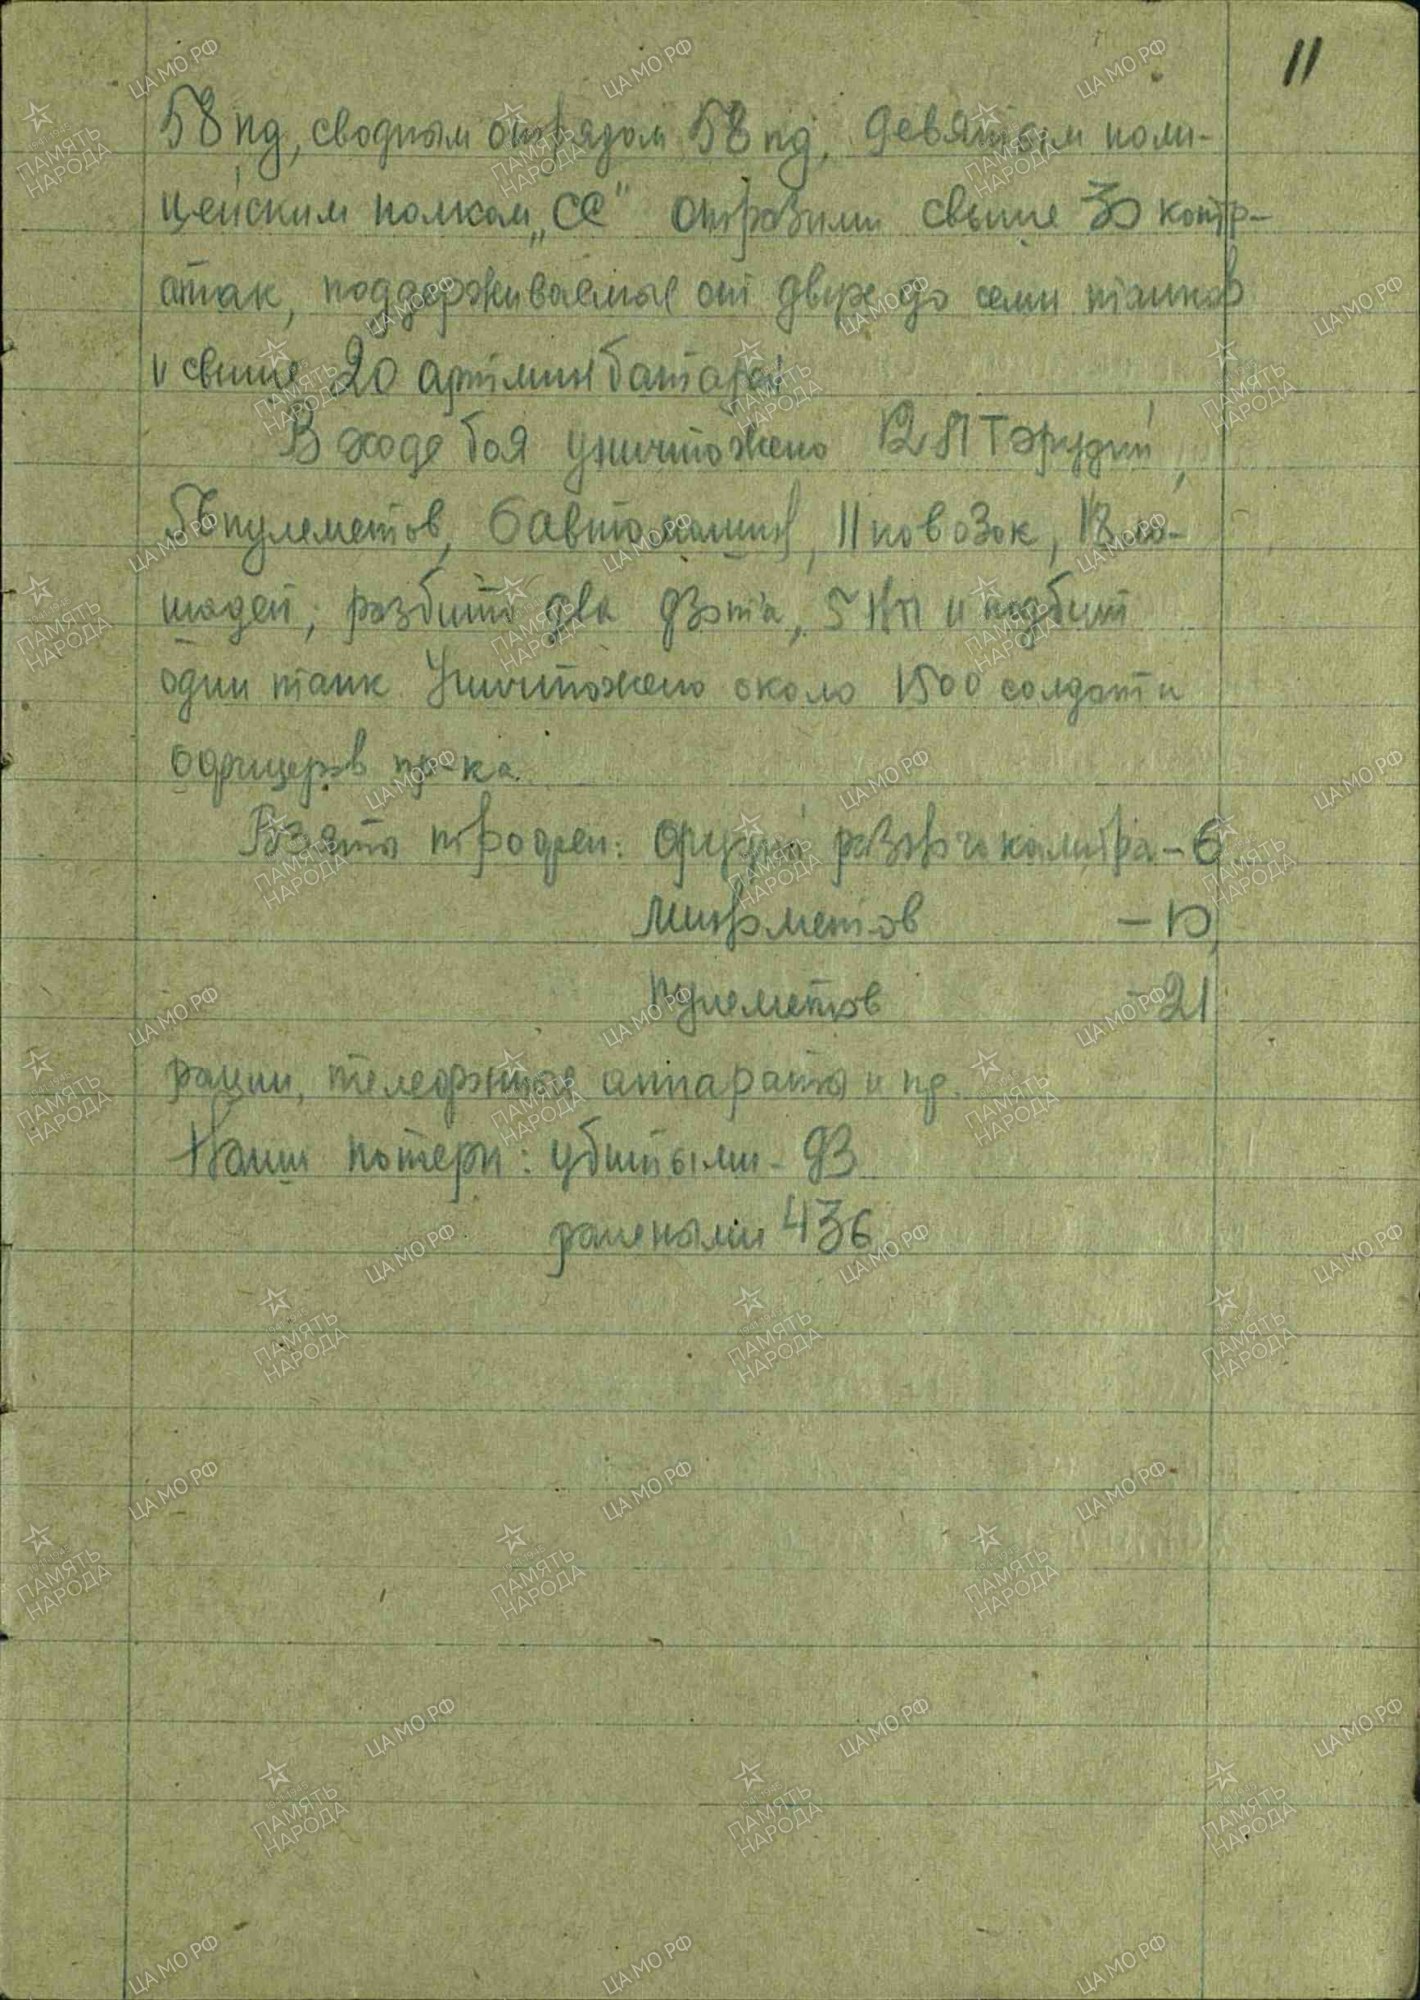 11
58 пд, сводным отрядом 58 пд, девятым поли-
цейским полком „СС" отразили свыше 30 контр-
атак, поддерживаемые от двух до семи танков
и свыше 20 артминбатарей
В ходе боя уничтожено 12 ПТ орудий,
пулеметов, 6 автомашин, 11 повозок, 18 ло-
шадей; разбито два дзота, 5 НП и подбит
один танк. Уничтожено около 1500 солдат и
офицеров пр-ка.
Взято трофеи: орудий разного калибра - 6
Минометов - 10,
Пулеметов - 21
рации, телефонные аппараты и пр.
Наши потери: убитыми -
ранеными 436
ЦА МО РФ
ПАМЯТЬ НАРОДА